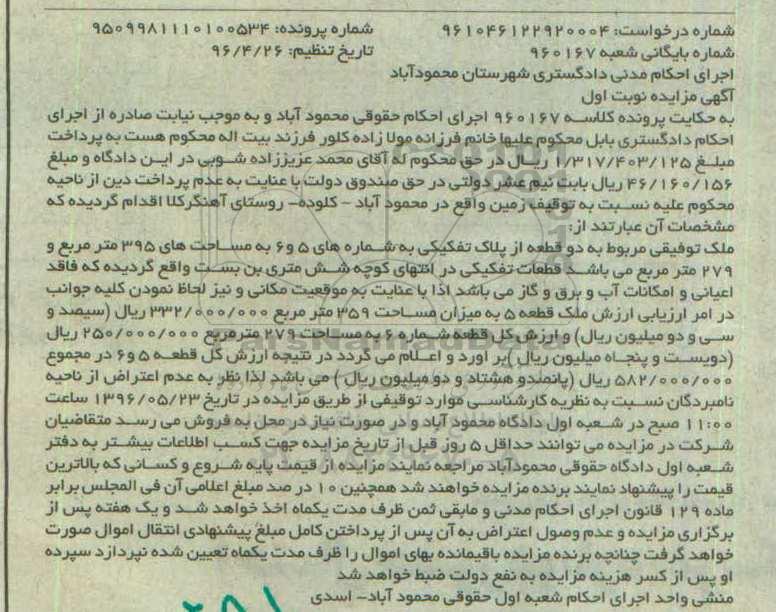 شماره درخواست: ۹۶۱۰۴۶۱۲۲۹۲۰۰۰۴ شماره پرونده: ۹۵۰۹۹۸۱۱۱۰۱۰۰۵۳۴
شماره بایگانی شعبه ۹۶۰۱۶۷ تاریخ تنظیم: ۹۶/۴/۲۶
اجرای احکام مدنی دادگستری شهرستان محمودآباد
آگهی مزایده نوبت اول
به حکایت پرونده کلاسه ۹۶۰۱۶۷ اجرای احکام حقوقی محمود آباد و به موجب نیابت صادره از اجرای
احکام دادگستری بابل محکوم علیها خانم فرزانه مولا زاده کلور فرزند بیت اله محکوم هست به پرداخت
مبلغ ۱/۳۱۷/۴۰۳/۱۲۵ ریال در حق محکوم له آقای محمد عزیززاده شوبی در این دادگاه و مبلغ
۴۶/۱۶۰/۱۵۶ ریال بابت نیم عشر دولتی در حق صندوق دولت با عنایت به عدم پرداخت دین از ناحیه
محکوم علیه نسبت به توقیف زمین واقع در محمود آباد - کلوده- روستای آهنگرکلا اقدام گردیده که
مشخصات آن عبارتند از:
ملک توقیفی مربوط به دو قطعه از پلاک تفکیکی به شماره های ۵ و ۶ به مساحت های ۳۹۵ متر مربع و
۲۷۹ متر مربع می باشد قطعات تفکیکی در انتهای کوچه شش متری بن بست واقع گردیده که فاقد
اعیانی و امکانات آب و برق و گاز می باشد لذا با عنایت به موقعیت مکانی و نیز لحاظ نمودن کلیه جوانب
در امر ارزیابی ارزش ملک قطعه ۵ به میزان مساحت ۳۵۹ متر مربع ۳۳۲/۰۰۰/۰۰۰ ریال (سیصد و
سی و دو میلیون ریال) و ارزش کل قطعه شماره ۶ به مساحت ۲۷۹ مترمربع ۲۵۰/۰۰۰/۰۰۰ ریال
(دویست و پنجاه میلیون ریال )بر اورد و اعلام می گردد در نتیجه ارزش کل قطعه ۵ و ۶ در مجموع
۵۸۲/۰۰۰/۰۰۰ ریال (پانصدو هشتاد و دو میلیون ریال ) می باشد لذا نظر به عدم اعتراض از ناحیه
نامبردگان نسبت به نظریه کارشناسی موارد توقیفی از طریق مزایده در تاریخ ۱۳۹۶/۰۵/۲۳ ساعت
۱۱:۰۰ صبح در شعبه اول دادگاه محمود آباد و در صورت نیاز در محل به فروش می رسد متقاضیان
شرکت در مزایده می توانند حداقل ۵ روز قبل از تاریخ مزایده جهت کسب اطلاعات بیشتر به دفتر
شعبه اول دادگاه حقوقی محمودآباد مراجعه نمایند مزایده از قیمت پایه شروع و کسانی که بالاترین
قیمت را پیشنهاد نمایند برنده مزایده خواهند شد همچنین ۱۰ در صد مبلغ اعلامی آن فی المجلس برابر
ماده ۱۲۹ قانون اجرای احکام مدنی و مابقی ثمن ظرف مدت یکماه اخذ خواهد شد و یک هفته پس از
برگزاری مزایده و عدم وصول اعتراض به آن پس از پرداختن کامل مبلغ پیشنهادی انتقال اموال صورت
خواهد گرفت چنانچه برنده مزایده باقیمانده بهای اموال را ظرف مدت یکماه تعیین شده نپردازد سپرده
او پس از کسر هزینه مزایده به نفع دولت ضبط خواهد شد
منشی واحد اجرای احکام شعبه اول حقوقی محمود آباد- اسدی